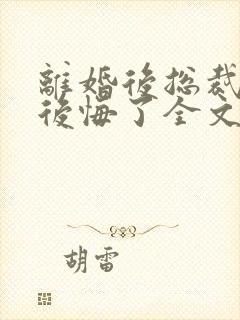 離婚後総裁
後悔了全文
胡雷